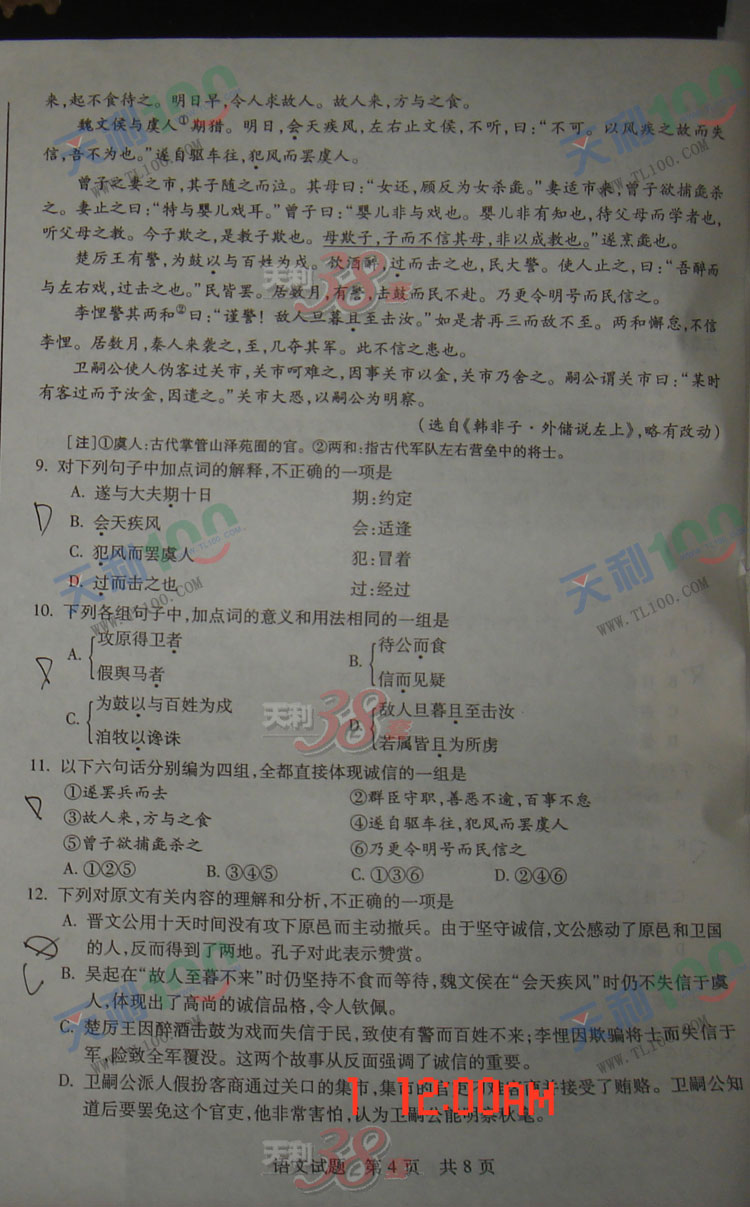 来,起不食待之。明日早,令人求故人。故人来,方与之食。
魏文侯与虞人①期猎。明日,会天疾风,左右止文侯,不听,曰:“不可。以风疾之故而失
信,吾不为也。”遂自驱车往,犯风而罢虞人。
曾子之妻之市,其子随之而泣。其母曰:“女还,顾反为女杀彘。”妻适市来,曾子欲捕彘杀
之。妻止之曰:“特与婴儿戏耳。”曾子曰:“婴儿非与戏也。婴儿非有知也,待父母而学者也,
听父母之教。今子欺之,是教子欺也。母欺子,子而不信其母,非以成教也。”遂烹彘也。
楚厉王有警,为鼓以与百姓为戍。饮酒醉,过而击之也,民大警。使人止之,曰:“吾醉而
与左右戏,过击之也。”民皆罢。居数月,有警,击鼓而民不赴。乃更令明号而民信之。
李悝警其两和②曰:“谨警!敌人旦暮且至击汝。”如是者再三而敌不至。两和懈怠,不信
李悝。居数月,秦人来袭之,至,几夺其军。此不信之患也。
卫嗣公使人伪客过关市,关市呵难之,因事关市以金,关市乃舍之。嗣公谓关市曰:“某时
有客过而予汝金,因遣之。”关市大恐,以嗣公为明察。
(选自《韩非子·外储说左上》,略有改动)
[注]①虞人:古代掌管山泽苑囿的官。②两和:指古代军队左右营垒中的将士。
9. 对下列句子中加点词的解释,不正确的一项是
A. 遂与大夫期十日 期:约定
B. 会天疾风 会:适逢
C. 犯风而罢虞人 犯:冒着
D. 过而击之也 过:经过
10. 下列各组句子中,加点词的意义和用法相同的一组是
A. 攻原得卫者 假舆马者
B. 待公而食 信而见疑
C. 为鼓以与百姓为戍 洎牧以谗诛
D. 敌人旦暮且至击汝 若属皆且为所虏
11. 以下六句话分别编为四组,全都直接体现诚信的一组是
①遂罢兵而去 ②群臣守职,善恶不逾,百事不怠
③故人来,方与之食 ④遂自驱车往,犯风而罢虞人
⑤曾子欲捕彘杀之 ⑥乃更令明号而民信之
A. ①②⑤ B. ③④⑤ C. ①③⑥ D. ②④⑥
12. 下列对原文有关内容的理解和分析,不正确的一项是
A. 晋文公用十天时间没有攻下原邑而主动撤兵。由于坚守诚信,文公感动了原邑和卫国
的人,反而得到了两地。孔子对此表示赞赏。
B. 吴起在“故人至暮不来”时仍坚持不食而等待,魏文侯在“会天疾风”时仍不失信于虞
人,体现出了高尚的诚信品格,令人钦佩。
C. 楚厉王因醉酒击鼓为戏而失信于民,致使有警而百姓不来;李悝因欺骗将士而失信于
军,险致全军覆没。这两个故事从反面强调了诚信的重要。
D. 卫嗣公派人假扮客商通过关口的集市,集市的官 接受了贿赂。卫嗣公知
道后要罢免这个官吏,他非常害怕,认为卫嗣公能明察秋毫。
1 12:00AM
语文试题 第4页 共8页
天利100
WWW.TL100.COM
天利38套